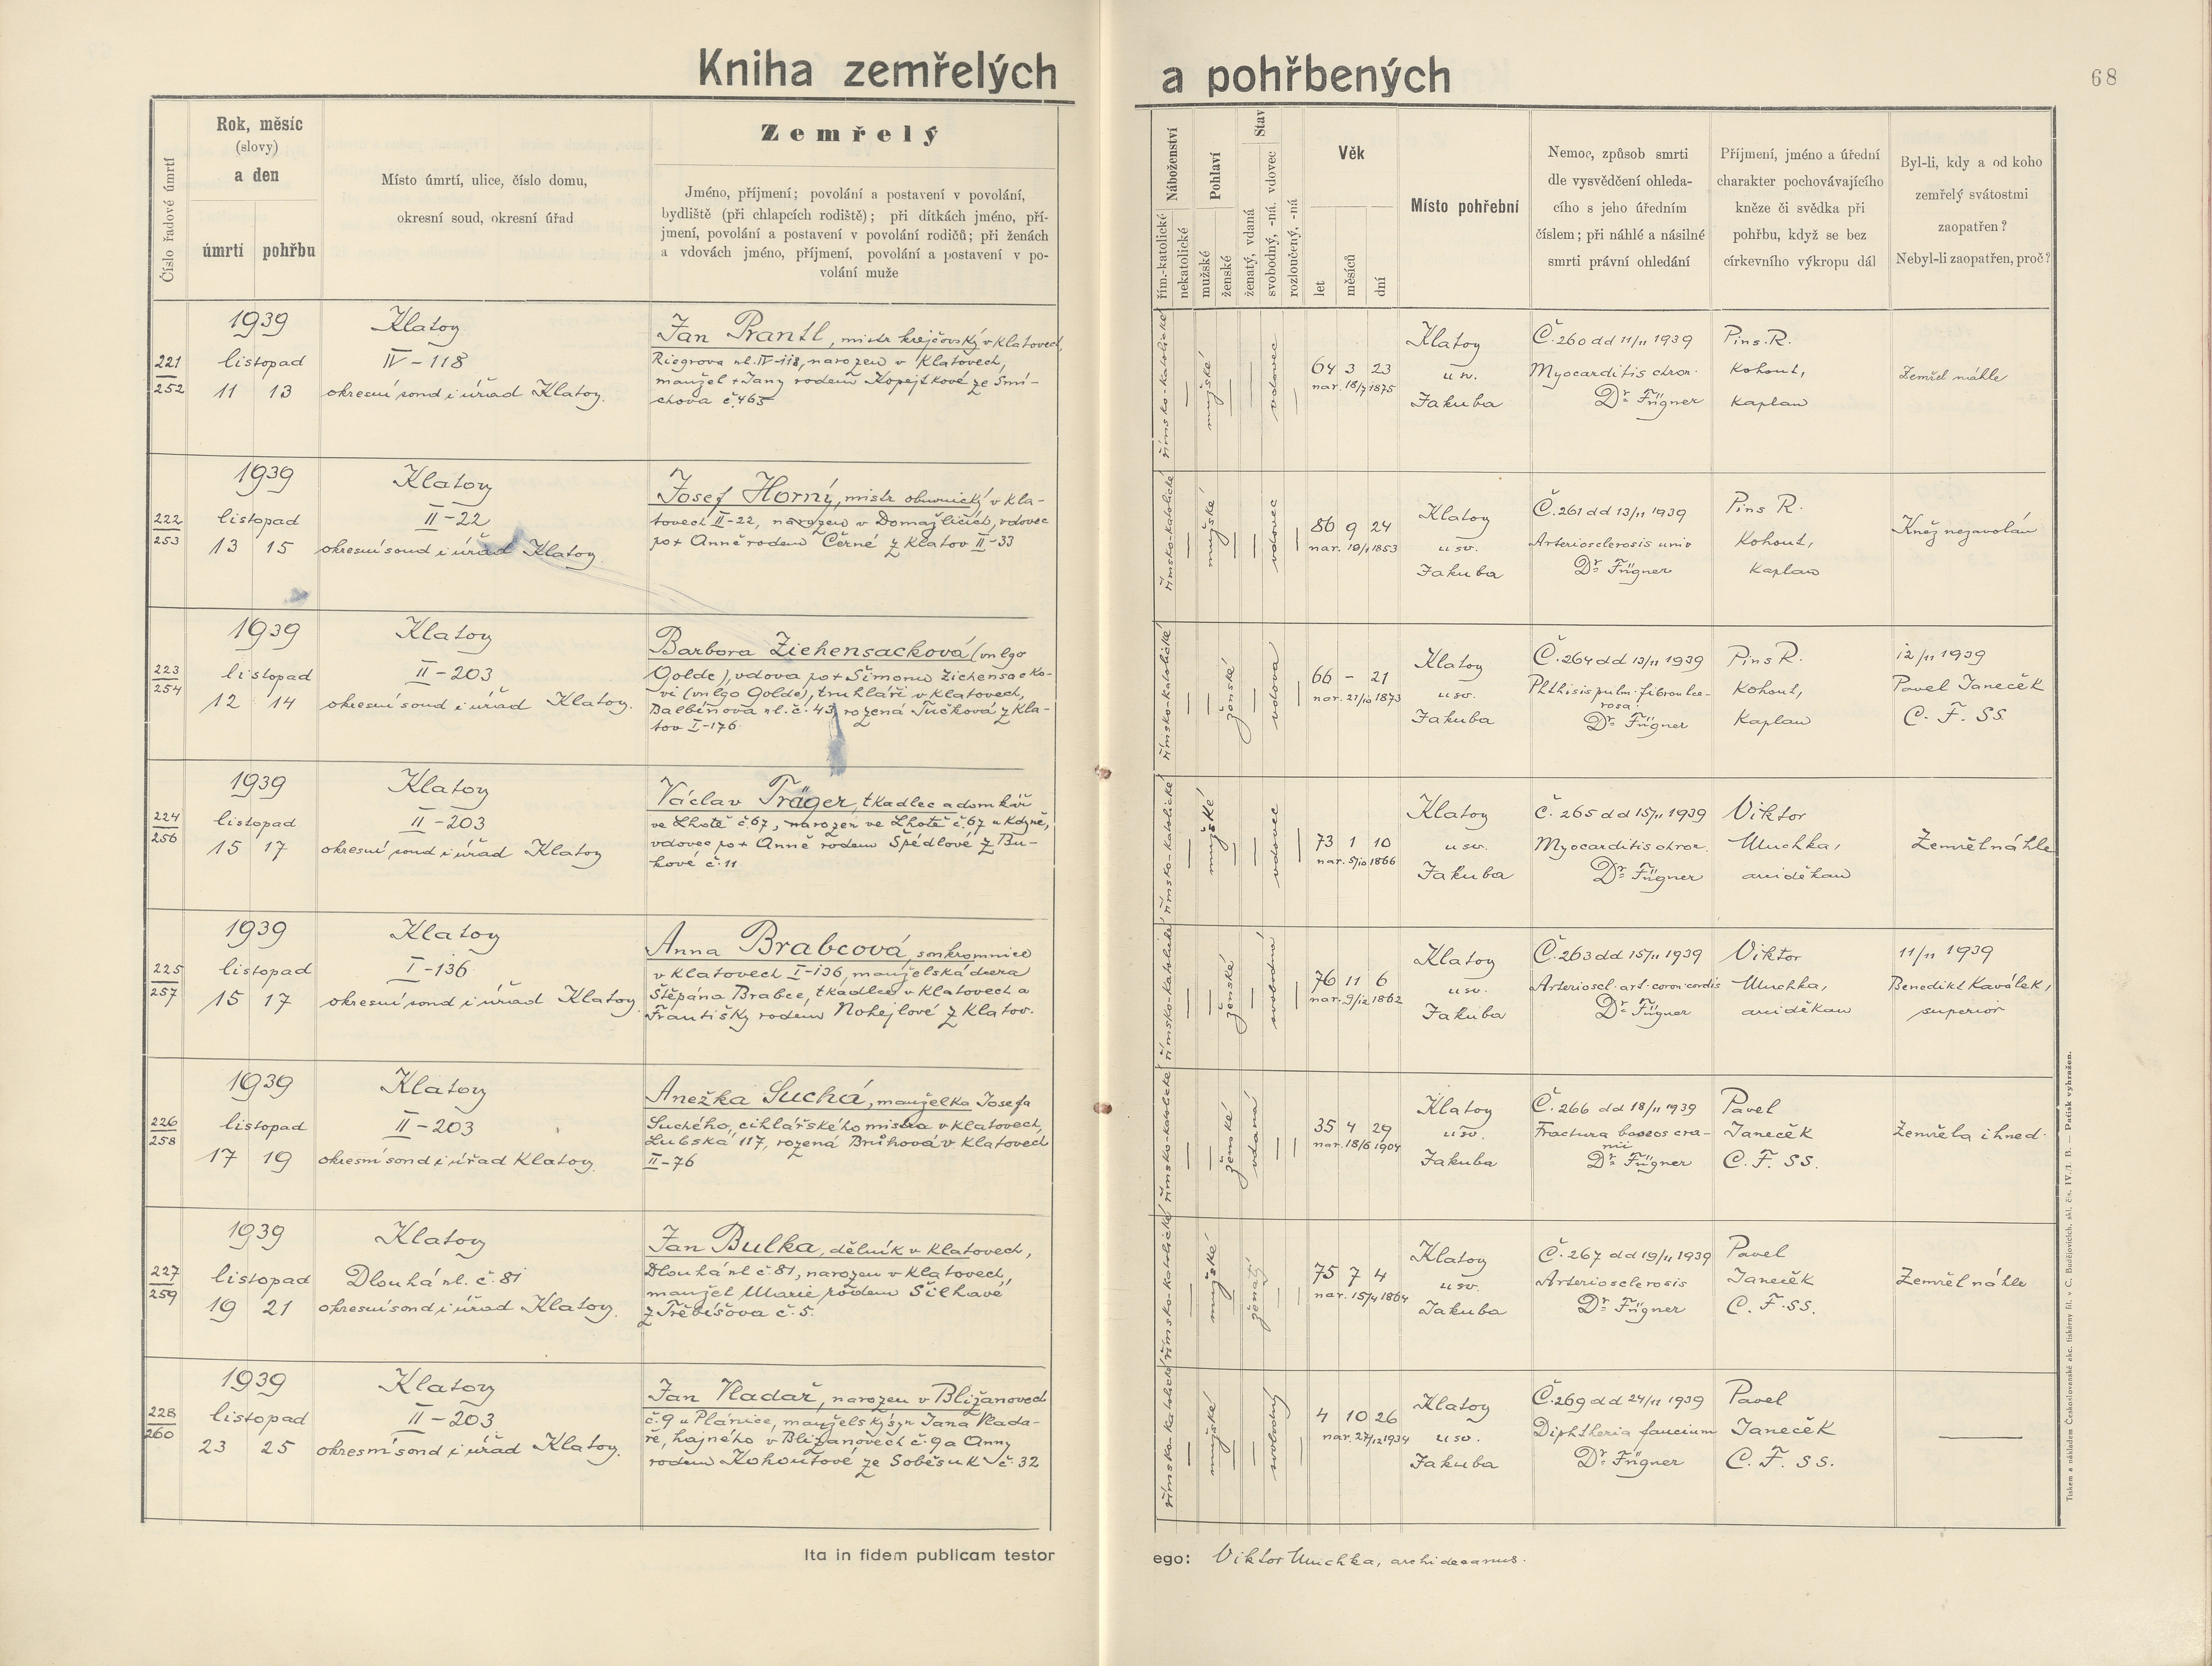 Kniha zemřelých a pohřbených
68
Číslo řadové úmrtí
Rok, měsíc
(slovy)
a den
úmrtí pohřbu
Místo úmrtí, ulice, číslo domu,
okresní soud, okresní úřad
Zemřelý
Jméno, příjmení; povolání a postavení v povolání,
bydliště (při chlapcích rodiště); při dítkách jméno, pří-
jmení, povolání a postavení v povolání rodičů; při ženách
a vdovách jméno, příjmení, povolání a postavení v po-
volání muže
Náboženství
řím.-katolické
nekatolické
Pohlaví
mužské
ženské
Stav
ženatý, vdaná
svobodný, -ná. vdovec
rozloučený, -ná
Věk
let
měsíců
dní
Místo pohřební
Nemoc, způsob smrti
dle vysvědčení ohleda-
cího s jeho úředním
číslem; při náhlé a násilné
smrti právní ohledání
Příjmení, jméno a úřední
charakter pochovávajícího
kněze či svědka při
pohřbu, když se bez
církevního výkropu dál
Byl-li, kdy a od koho
zemřelý svátostmi
zaopatřen?
Nebyl-li zaopatřen, proč?
221
252
1939
listopad
11 13
Klatovy
IV-118
okresní soud i úřad Klatovy.
Jan Prantl, mistr krejčovský v Klatovech,
Riegrova ul. IV-118, narozen v Klatovech,
manžel + Jany rodem Kopejtkové ze Smí-
chova č. 463
římsko-katolické
mužské
vdovec
64 3 23
nar. 18/7 1875
Klatovy
u sv.
Jakuba
Č. 260 dd 11/11 1939
Myocarditis chron.
Dr. Fügner
Pins. R.
Kohout,
kaplan
Zemřel náhle
222
253
1939
listopad
13 15
Klatovy
II-22
okresní soud i úřad Klatovy.
Josef Horný, mistr obuvnický v Kla-
tovech II-22, narozen v Domažlicích, vdovec
po + Anně rodem Černé z Klatov II-33
římsko-katolické
mužské
vdovec
86 9 24
nar. 19/1 1853
Klatovy
u sv.
Jakuba
Č. 261 dd 13/11 1939
Arteriosclerosis univ
Dr. Fügner
Pins R.
Kohout,
kaplan
Kněz nezavolán
223
254
1939
listopad
12 14
Klatovy
II-203
okresní soud i úřad Klatovy.
Barbora Ziehensacková (vulgo
Golde), vdova po + Šimonu Ziehensacko-
vi (vulgo Golde), truhláři v Klatovech,
Balbínova ul. č. 43, rozená Tučková z Kla-
tov I-176
římsko-katolické
ženské
vdova
66 - 21
nar. 21/10 1873
Klatovy
u sv.
Jakuba
Č. 264 dd 13/11 1939
Phthisis pulm. fibroulce-
rosa
Dr. Fügner
Pins R.
Kohout,
Kaplan
12/11 1939
Pavel Janeček
C. F. SS.
224
256
1939
listopad
15 17
Klatovy
II-203
okresní soud i úřad Klatovy
Václav Träger, tkadlec a domkář
ve Lhotě č. 67, narozen ve Lhotě č. 67 u Kdyně,
vdovec po + Anně rodem Špédlové z Bu-
kové č. 11
římsko-katolické
mužské
vdovec
73 1 10
nar. 5/10 1866
Klatovy
u sv.
Jakuba
Č. 265 dd 15/11 1939
Myocarditis chron.
Dr. Fügner
Viktor
Muchka,
arciděkan
Zemřel náhle
225
257
1939
listopad
15 17
Klatovy
I-136
okresní soud i úřad Klatovy.
Anna Brabcová, soukromnice
v Klatovech I-136, manželská dcera
Štěpána Brabce, tkadlce v Klatovech a
Františky rodem Nohejlové z Klatov.
římsko-katolické
ženské
svobodná
76 11 6
nar. 9/12 1862
Klatovy
u sv.
Jakuba
Č. 263 dd 15/11 1939
Arterioscl. art. coron. cordis
Dr. Fügner
Viktor
Muchka,
arciděkan
11/11 1939
Benedikt Kaválek,
superior
226
258
1939
listopad
17 19
Klatovy
II-203
okresní soud i úřad Klatovy.
Anežka Suchá, manželka Josefa
Suchého, cihlářského mistra v Klatovech,
Lubská 117, rozená Brůhová v Klatovech
II-76
římsko-katolické
ženské
vdaná
35 4 29
nar. 18/6 1904
Klatovy
u sv.
Jakuba
Č. 266 dd 18/11 1939
Fractura baseos cra-
nii
Dr. Fügner
Pavel
Janeček
C. F. SS.
Zemřela ihned.
227
259
1939
listopad
19 21
Klatovy
Dlouhá ul. č. 81
okresní soud i úřad Klatovy.
Jan Bulka, dělník v Klatovech,
Dlouhá ul č. 81, narozen v Klatovech,
manžel Marie rodem Šilhavé
z Třebíšova č. 5.
římsko-katolické
mužské
ženatý
75 7 4
nar. 15/4 1864
Klatovy
u sv.
Jakuba
Č. 267 dd 19/11 1939
Arteriosclerosis
Dr. Fügner
Pavel
Janeček
C. F. SS.
Zemřel náhle
228
260
1939
listopad
23 25
Klatovy
II-203
okresní soud i úřad Klatovy.
Jan Vladař, narozen v Bližanovech
č. 9 u Plánice, manželský syn Jana Vlada-
ře, hajného v Bližanovech č. 9 a Anny
rodem Kohoutové ze Soběsuk č. 32
římsko-katolické
mužské
svobodný
4 10 26
nar. 27/12 1934
Klatovy
u sv.
Jakuba
Č. 269 dd 24/11 1939
Diphtheria faucium
Dr. Fügner
Pavel
Janeček
C. F. SS.
Ita in fidem publicam testor ego: Viktor Muchka, archidecanus.
Tiskem a nákladem Československé akc. tiskárny fil. v Č. Budějovicích, skl. čís. IV./1. B. — Patisk vyhražen.